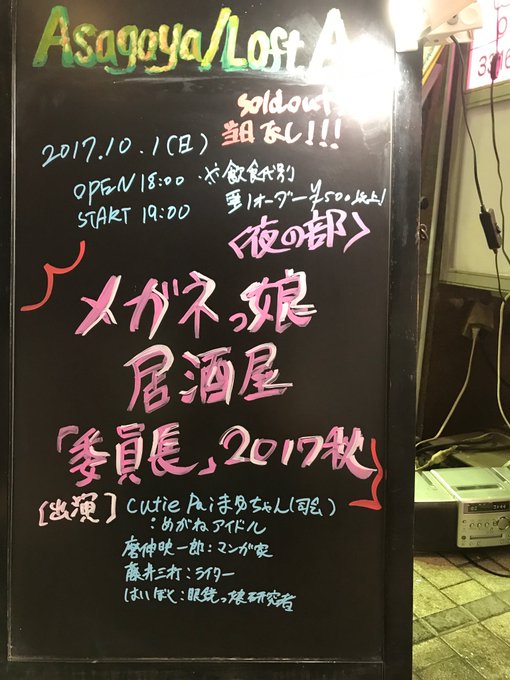 Asagaya/Loft A
soldout!
当日なし!!!
2017.10.1(日)
OPEN 18:00 ※飲食代別
START 19:00 要1オーダー¥500以上!
<夜の部>
メガネっ娘
居酒屋
「委員長」2017秋
[出演] Cutie Paiまゆちゃん(司会)
:めがねアイドル
磨伸映一郎:マンガ家
藤井三打:ライター
はいぼく:眼鏡っ娘研究者